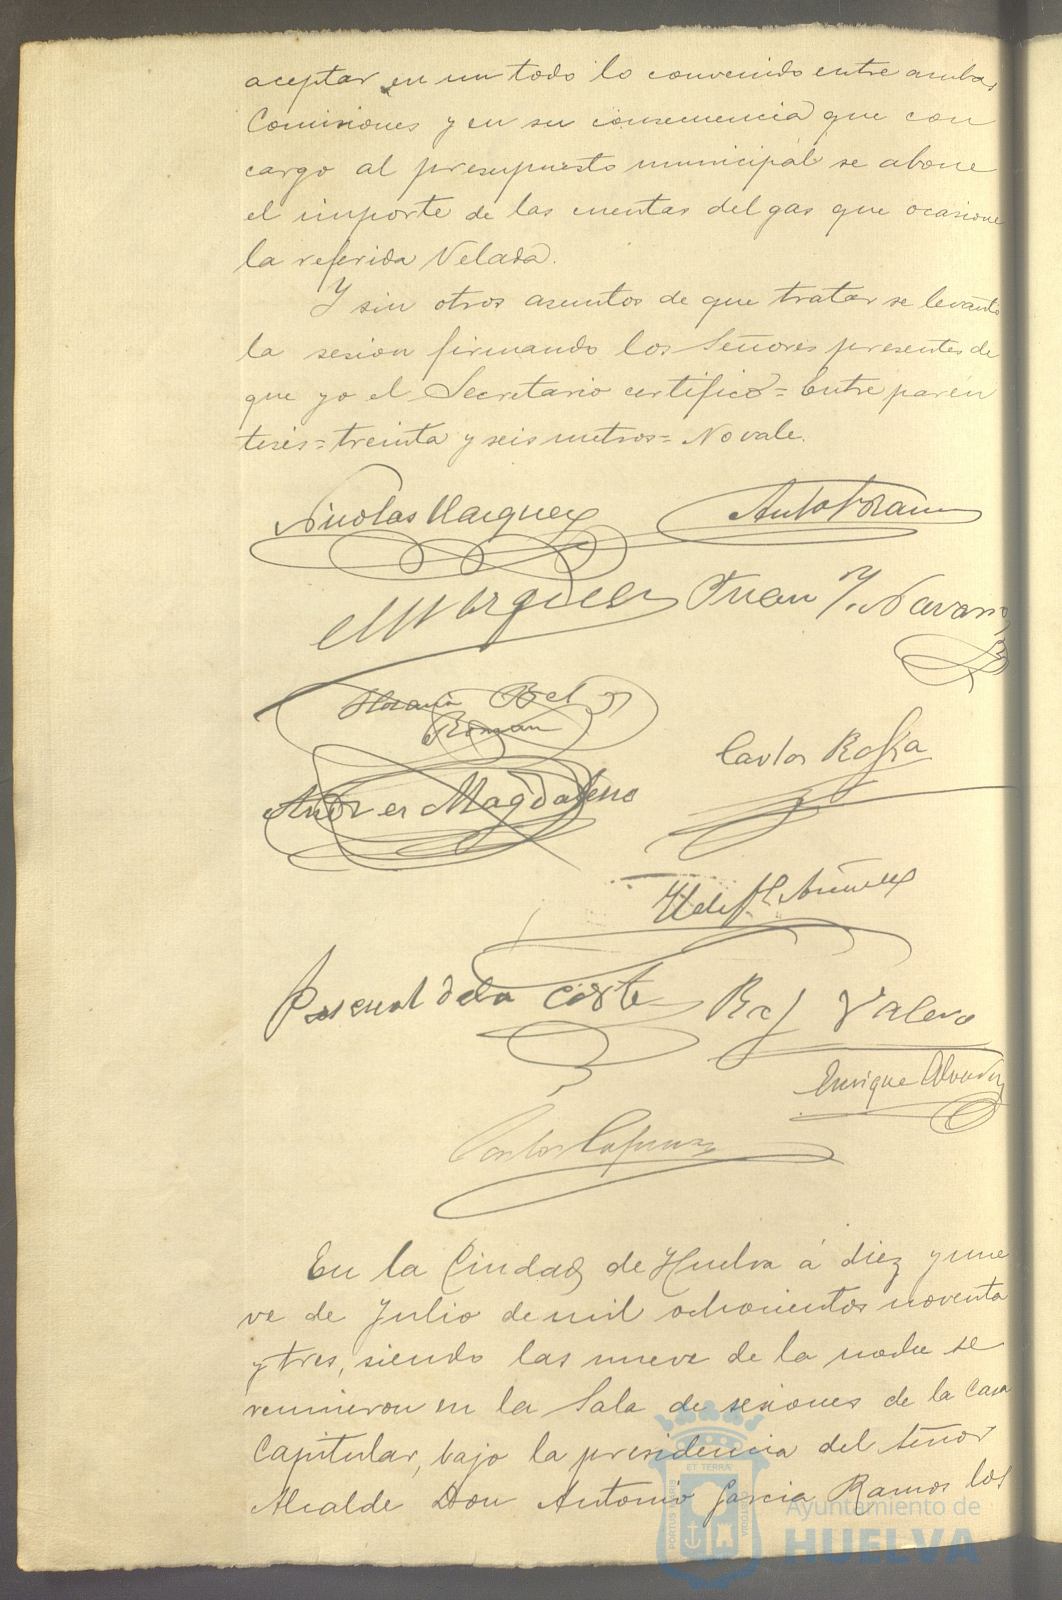 aceptar en un todo lo convenido entre ambas
Comisiones y en su consecuencia que con
cargo al presupuesto municipal se abone
el importe de las cuentas del gas que ocasione
la referida Velada.
Y sin otros asuntos de que tratar se levantó
la sesion firmando los Señores presentes de
que yo el Secretario certifico = Entre parén
tesis = treinta y seis metros = No vale.
Nicolas Vazquez
Juan Y. Navarro
Roman
Carlos
Andres Magdaleno
Pascual de la Corte
Raf Valero
Enrique
En la Ciudad de Huelva á diez y nue
ve de Julio de mil ochocientos noventa
y tres, siendo las nueve de la noche se
reunieron en la Sala de sesiones de la Casa
Capitular, bajo la presidencia del Señor
Alcalde Don Antonio Garcia Ramos los
ET TERRÆ
PORTUS MARIS
CUSTODIA
Ayuntamiento de
HUELVA